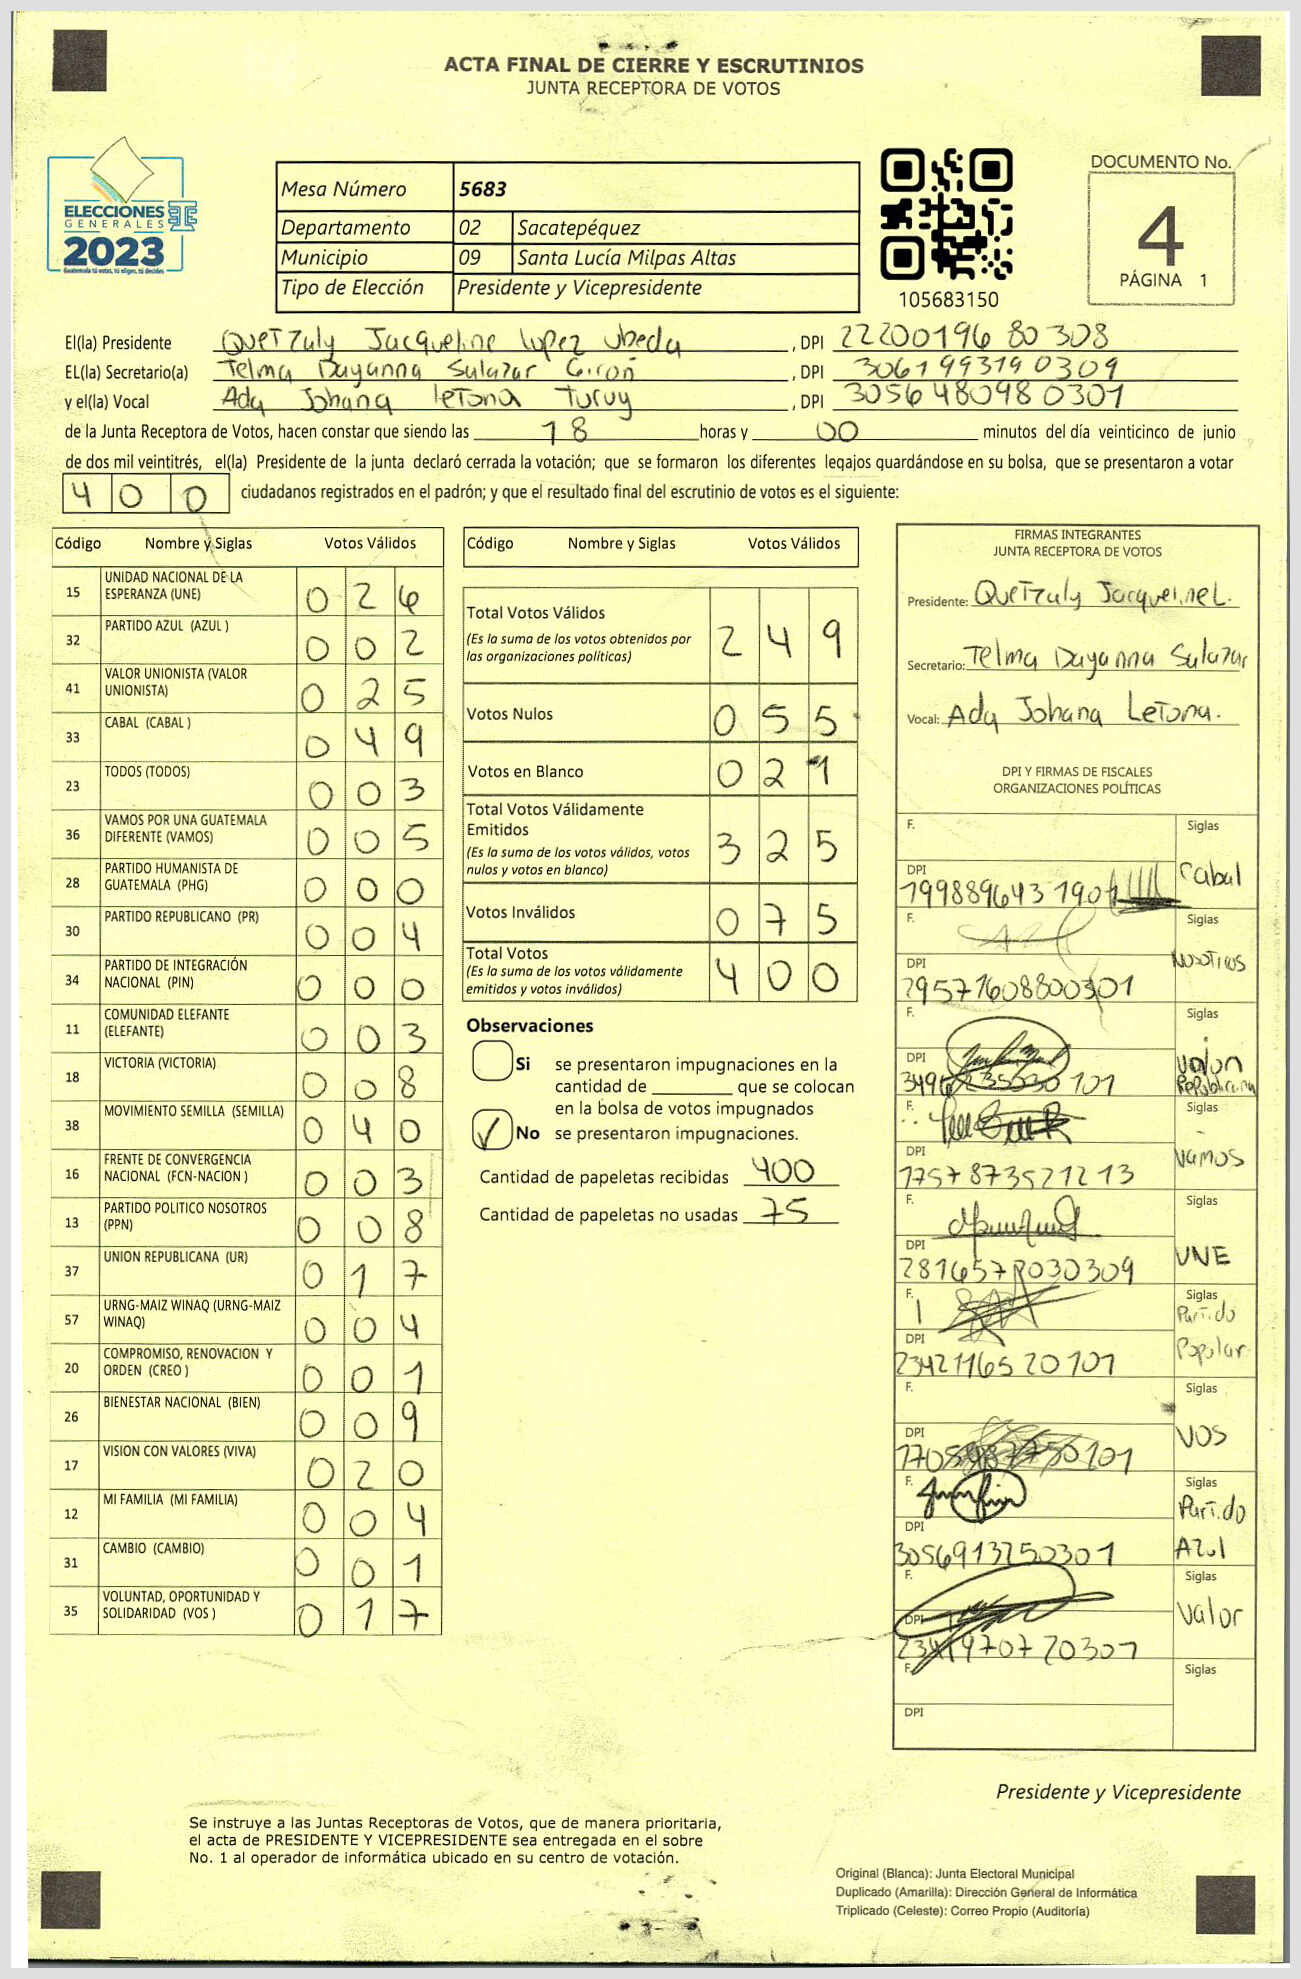 ACTA FINAL DE CIERRE Y ESCRUTINIOS
JUNTA RECEPTORA DE VOTOS
ELECCIONES
GENERALES
2023
Guatemala tú votas, tú eliges, tú decides
Mesa Número 5683
Departamento 02 Sacatepéquez
Municipio 09 Santa Lucía Milpas Altas
Tipo de Elección Presidente y Vicepresidente
105683150
DOCUMENTO No.
4
PÁGINA 1
El(la) Presidente Quetzaly Jacqueline Lopez Ubeda, DPI 2220019680308
EL(la) Secretario(a) Telma Dayanna Salazar Giron, DPI 3061993190309
y el(la) Vocal Ada Johana Letona Turuy, DPI 3056480980301
de la Junta Receptora de Votos, hacen constar que siendo las 18 horas y 00 minutos del día veinticinco de junio
de dos mil veintitrés, el(la) Presidente de la junta declaró cerrada la votación; que se formaron los diferentes legajos guardándose en su bolsa, que se presentaron a votar
400 ciudadanos registrados en el padrón; y que el resultado final del escrutinio de votos es el siguiente:
Código Nombre y Siglas Votos Válidos
15 UNIDAD NACIONAL DE LA ESPERANZA (UNE) 026
32 PARTIDO AZUL (AZUL ) 002
41 VALOR UNIONISTA (VALOR UNIONISTA) 025
33 CABAL (CABAL ) 049
23 TODOS (TODOS) 003
36 VAMOS POR UNA GUATEMALA DIFERENTE (VAMOS) 005
28 PARTIDO HUMANISTA DE GUATEMALA (PHG) 000
30 PARTIDO REPUBLICANO (PR) 004
34 PARTIDO DE INTEGRACIÓN NACIONAL (PIN) 000
11 COMUNIDAD ELEFANTE (ELEFANTE) 003
18 VICTORIA (VICTORIA) 008
38 MOVIMIENTO SEMILLA (SEMILLA) 040
16 FRENTE DE CONVERGENCIA NACIONAL (FCN-NACION ) 003
13 PARTIDO POLITICO NOSOTROS (PPN) 008
37 UNION REPUBLICANA (UR) 017
57 URNG-MAIZ WINAQ (URNG-MAIZ WINAQ) 004
20 COMPROMISO, RENOVACION Y ORDEN (CREO ) 001
26 BIENESTAR NACIONAL (BIEN) 009
17 VISION CON VALORES (VIVA) 020
12 MI FAMILIA (MI FAMILIA) 004
31 CAMBIO (CAMBIO) 001
35 VOLUNTAD, OPORTUNIDAD Y SOLIDARIDAD (VOS ) 017
Código Nombre y Siglas Votos Válidos
Total Votos Válidos 249
(Es la suma de los votos obtenidos por
las organizaciones políticas)
Votos Nulos 055
Votos en Blanco 021
Total Votos Válidamente
Emitidos 325
(Es la suma de los votos válidos, votos
nulos y votos en blanco)
Votos Inválidos 075
Total Votos 400
(Es la suma de los votos válidamente
emitidos y votos inválidos)
Observaciones
Si se presentaron impugnaciones en la
cantidad de ________ que se colocan
en la bolsa de votos impugnados
✓ No se presentaron impugnaciones.
Cantidad de papeletas recibidas 400
Cantidad de papeletas no usadas 75
FIRMAS INTEGRANTES
JUNTA RECEPTORA DE VOTOS
Presidente: Quetzaly Jacqueline L.
Secretario: Telma Dayanna Salazar
Vocal: Ada Johana Letona.
DPI Y FIRMAS DE FISCALES
ORGANIZACIONES POLÍTICAS
F. Siglas
DPI Cabal
F. Siglas
DPI Nosotros
F. Siglas
DPI Union Republicana
F. Siglas
DPI 1757873521213 Vamos
F. Siglas
DPI UNE
F. Siglas
Partido
DPI 2342116520101 Popular
F. Siglas
DPI VOS
F. Siglas
Partido
DPI 3056913250301 Azul
F. Siglas
DPI Valor
F. Siglas
DPI
Presidente y Vicepresidente
Se instruye a las Juntas Receptoras de Votos, que de manera prioritaria,
el acta de PRESIDENTE Y VICEPRESIDENTE sea entregada en el sobre
No. 1 al operador de informática ubicado en su centro de votación.
Original (Blanca): Junta Electoral Municipal
Duplicado (Amarilla): Dirección General de Informática
Triplicado (Celeste): Correo Propio (Auditoría)